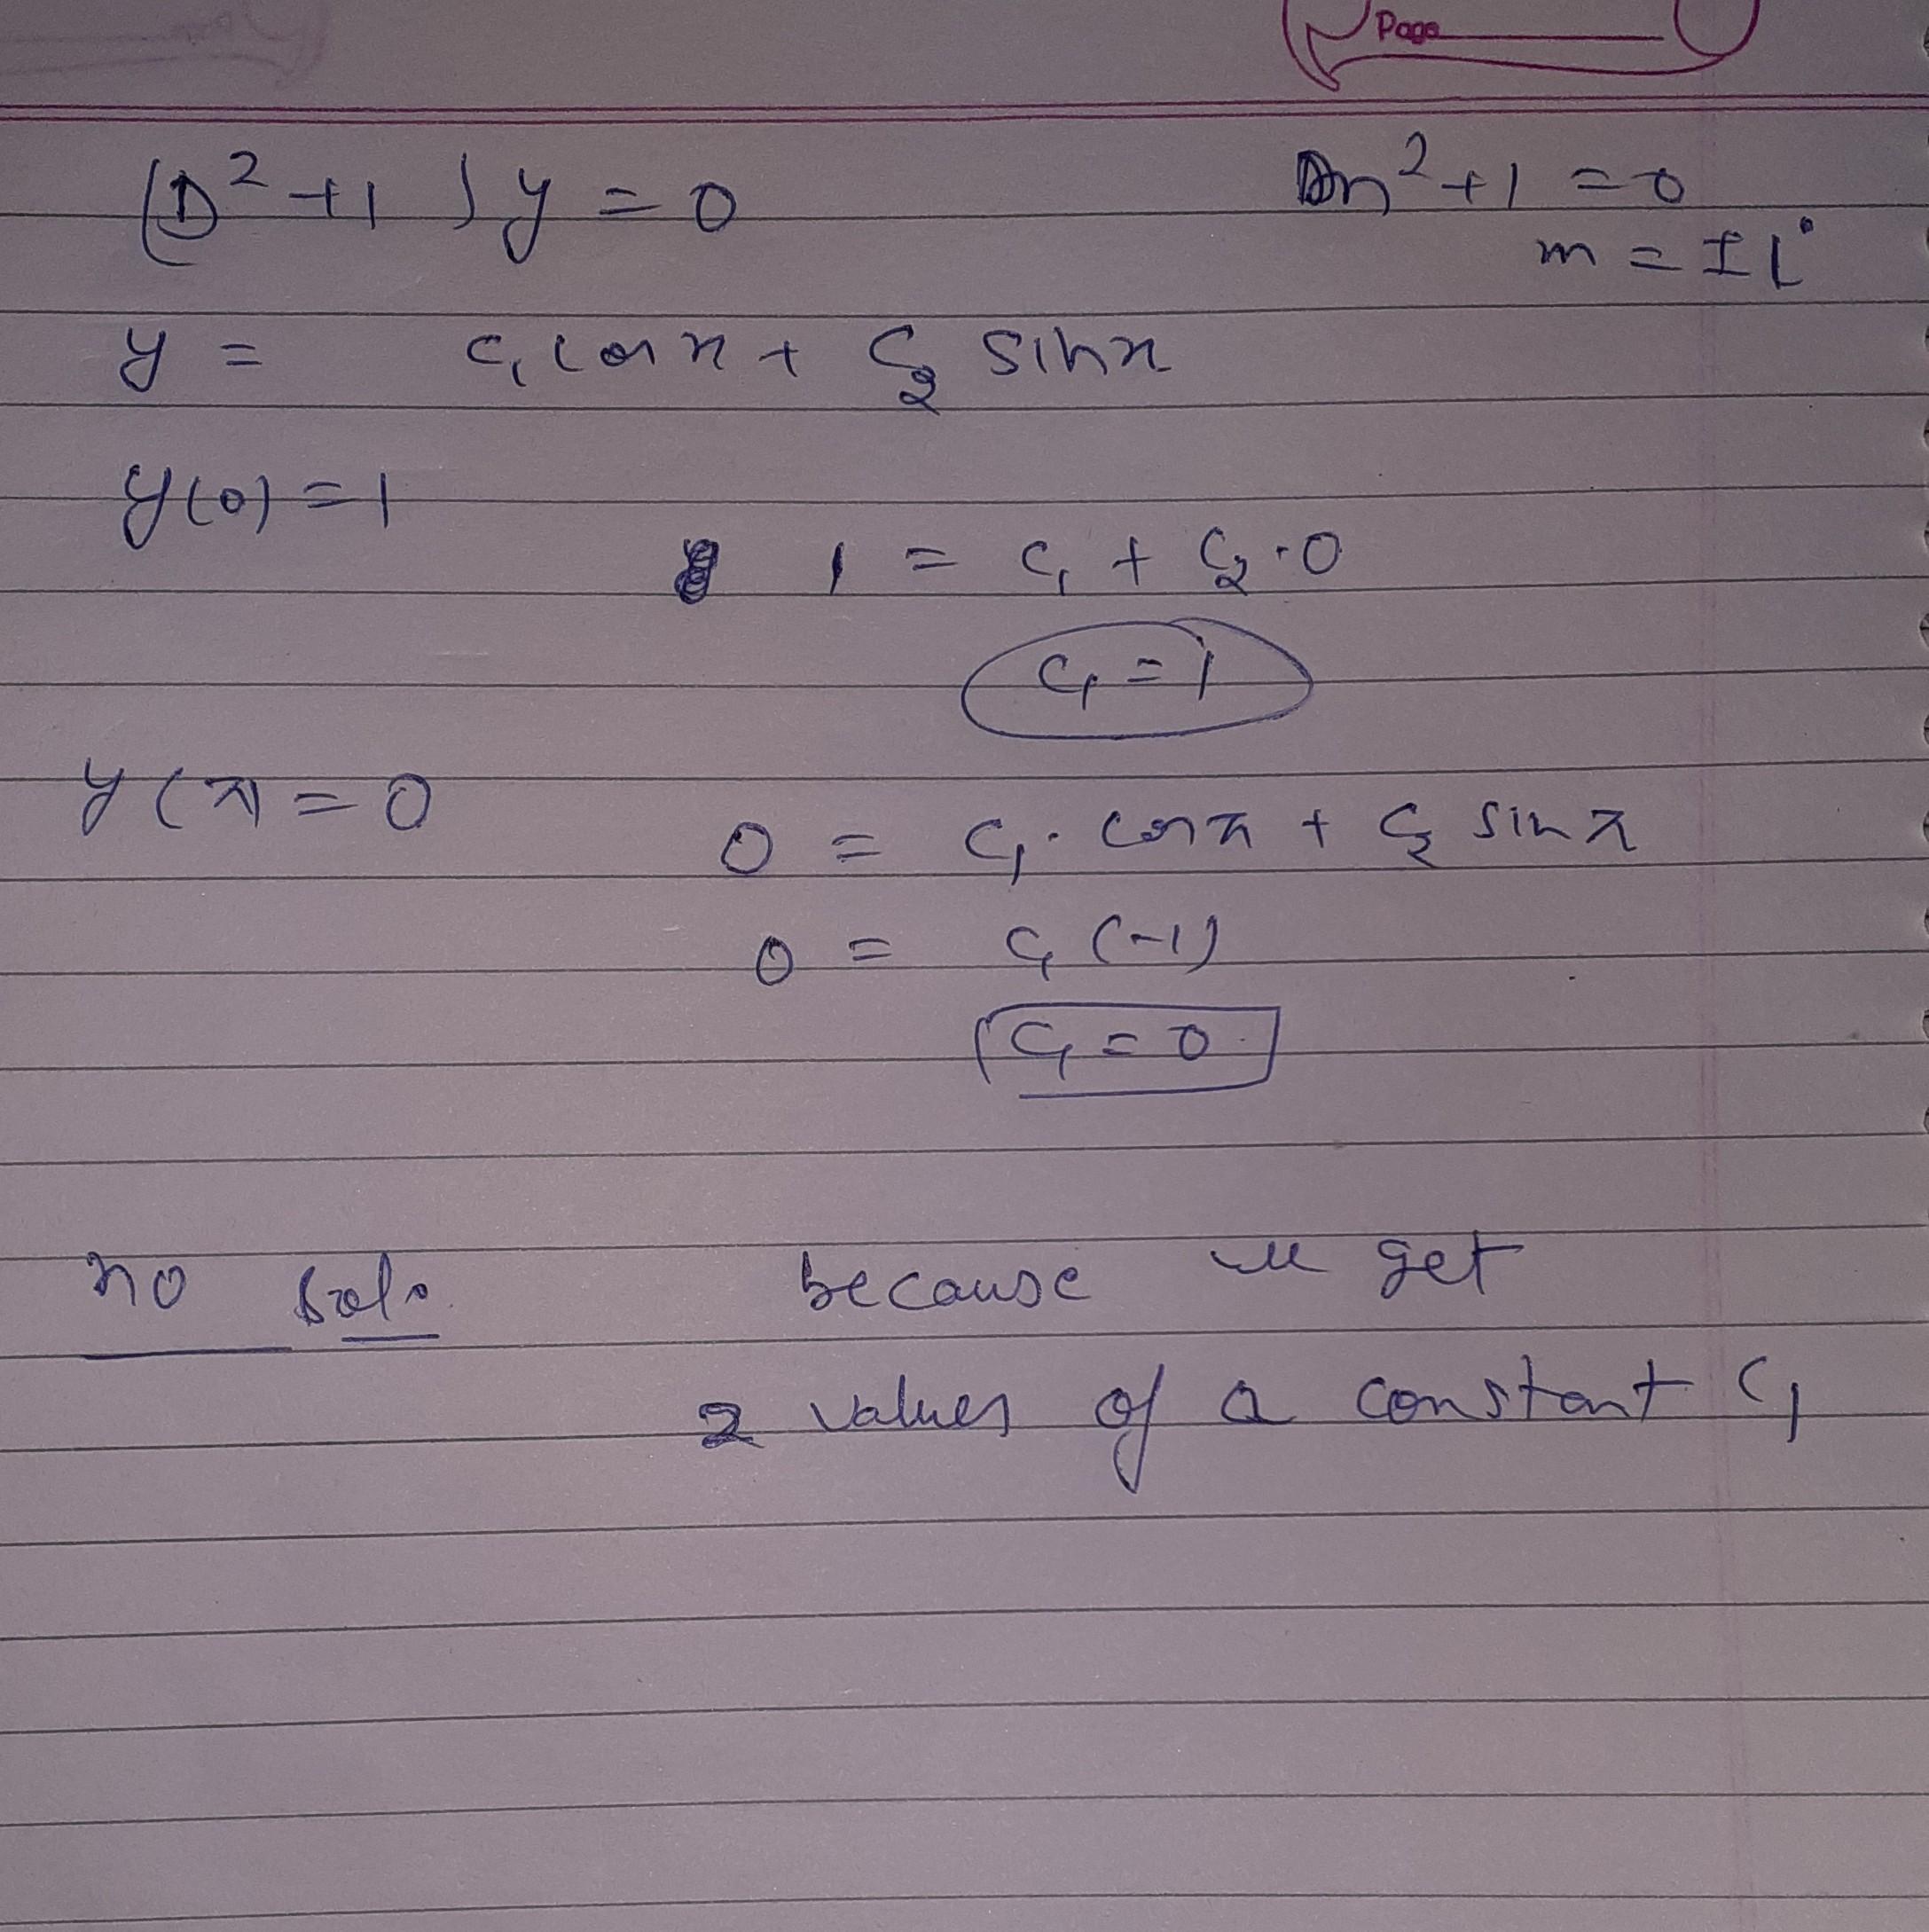 Page
(D² + 1) y = 0
m² + 1 = 0
m = ± i
y = c₁ cos x + c₂ sin x
y(0) = 1
1 = c₁ + c₂ · 0
c₁ = 1
y(π = 0
0 = c₁ · cos π + c₂ sin π
0 = c₁ (-1)
c₁ = 0
no soln. because we get
2 values of a constant c₁